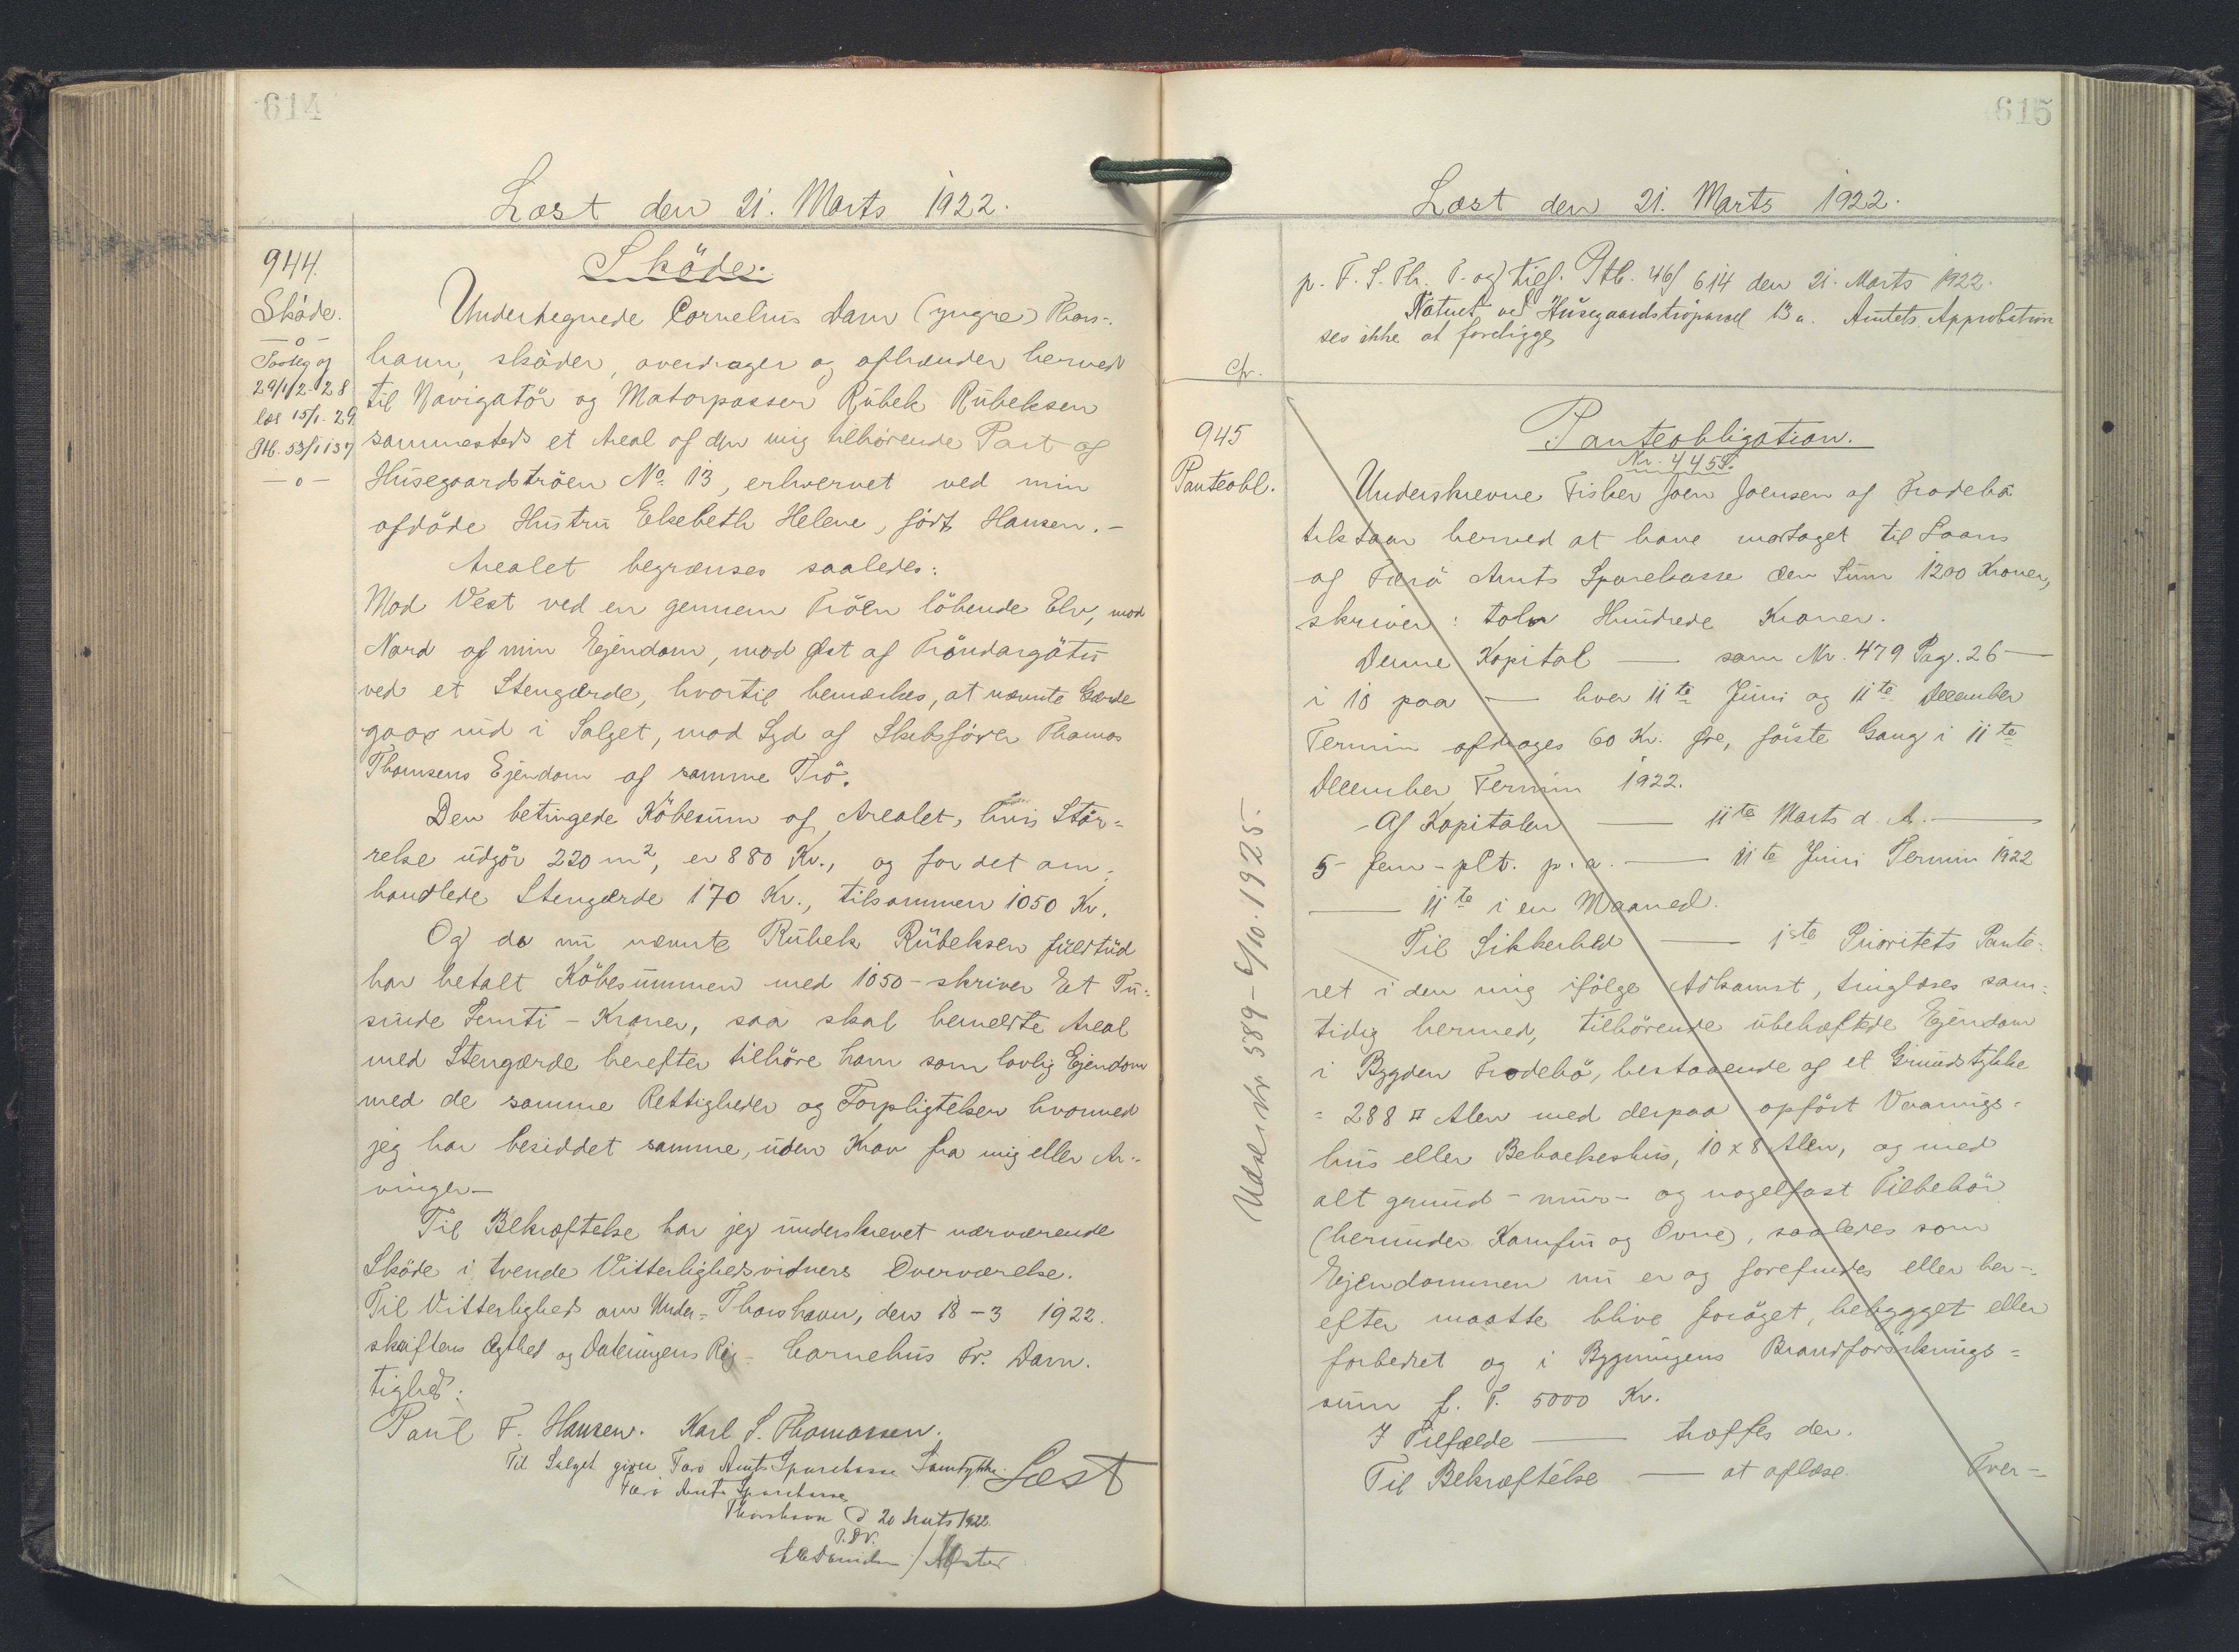 614
Læst den 21. Marts 1922.
944.
Sköde.
—o—
29/12-28
læs 15/1-29
Ptb. 53/1137
—o—
Sköde.
Undertegnede Cornelius Dam (yngre) Thors-
havn, sköder, overdrager og afhænder herved
til Navigatör og Motorpasser Rubek Rubeksen
sammesteds et Areal af den mig tilhörende Part af
Husegaardströen No. 13, erhvervet ved min
afdöde Hustru Elsebeth Helene, födt Hansen.-
Arealet begrænses saaledes:
Mod Vest ved en gennem Tröen löbende Elv, mod
Nord af min Ejendom, mod Øst af Tröndargötu
ved et Stengærde, hvortil bemærkes, at nævnte Gærde
gaar ind i Salget, mod Syd af Skibsförer Thomas
Thomsens Ejendom af samme Trö.
Den betingede Köbesum af Arealet, hvis Stör=
relse udgör 220 m², er 880 Kr., og for det om=
handlede Stengærde 170 Kr., tilsammen 1050 Kr.
Og da nu nævnte Rubek Rubeksen fuldtud
har betalt Köbesummen med 1050 - skriver Et Tu=
sinde Femti - Kroner, saa skal bemeldte Areal
med Stengærde herefter tilhöre ham som lovlig Ejendom
med de samme Rettigheder og Forpligtelser hvormed
jeg har besiddet samme, uden Krav fra mig eller Ar-
vinger.-
Til Bekræftelse har jeg underskrevet nærværende
Sköde i tvende Vitterlighedsvidners Overværelse.
Til Vitterlighed om Under= Thorshavn, den 18-3 1922.
skriftens Ægthed og Dateringens Rig- Cornelius Fr. Dam.
tighed:
Paul F. Hansen. Karl S. Thomassen.
Til Salget giver Færö Amts Sparekasse Samtykke. Læst
Færö Amts Sparekasse
Thorshavn d 20 Marts 1922.
615
Læst den 21. Marts 1922.
p. F. S. Th. P. og tilf. Ptb. 46/614 den 21. Marts 1922.
Noteret ved Husegaardströparcel 13a. Amtets Approbation
ses ikke at foreligge
cfr.
945
Panteobl.
Udslettet 389 - 6/10.1925.
Panteobligation.
Nr. 4458.
Underskrevne Fisker Joen Joensen af Frodebö
tilstaar herved at have modtaget til Laans
af Færö Amts Sparekasse den Sum 1200 Kroner,
skriver: tolv Hundrede Kroner.
Denne Kapital — som Nr. 479 Pag. 26 —
i 10 paa — hver 11te Juni og 11te December
Termin afdrages 60 Kr. Øre, förste Gang i 11te
December Termin 1922.
Af Kapitalen — 11te Marts d. A. —
5 - fem - pCt. p. a. — 11te Juni Termin 1922
— 11te i en Maaned.
Til Sikkerhed — 1ste Prioritets Pante-
ret i den mig ifölge Adkomst, tinglæses sam=
tidig hermed, tilhörende ubehæftede Ejendom
i Bygden Frodebö, bestaaende af et Grundstykke
= 288 ¤ Alen med derpaa opfört Vaanings=
hus eller Beboelseshus, 10 x 8 Alen, og med
alt grund - mur- og nagelfast Tilbehör
(herunder Komfur og Ovne), saaledes som
Ejendommen nu er og forefindes eller her-
efter maatte blive foröget, bebygget eller
forbedret og i Bygningens Brandforsikrings=
sum f. T. 5000 Kr.
I Tilfælde — træffes der.
Til Bekræftelse — at aflæse. Tver=